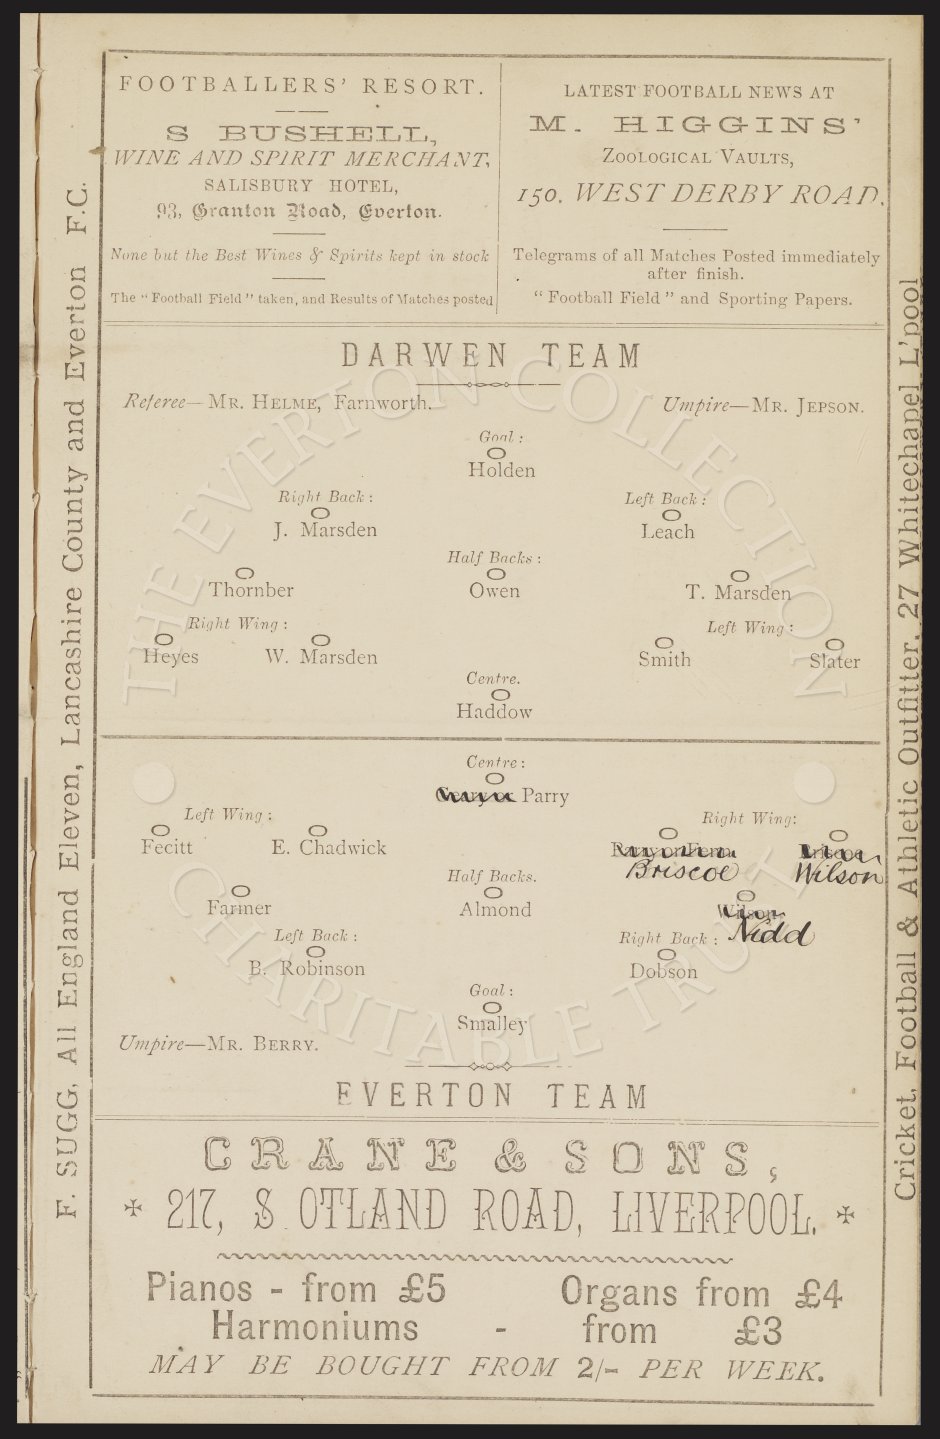 FOOTBALLERS' RESORT.
S BUSHELL,
WINE AND SPIRIT MERCHANT,
SALISBURY HOTEL,
93, Granton Road, Everton.
None but the Best Wines & Spirits kept in stock
The "Football Field" taken, and Results of Matches posted
LATEST FOOTBALL NEWS AT
M. HIGGINS'
ZOOLOGICAL VAULTS,
150, WEST DERBY ROAD,
Telegrams of all Matches Posted immediately
after finish.
"Football Field" and Sporting Papers.
F. SUGG, All England Eleven, Lancashire County and Everton F.C.
DARWEN TEAM
Referee—MR. HELME, Farnworth. Umpire—MR. JEPSON.
Goal:
Holden
Right Back: Left Back:
J. Marsden Leach
Half Backs:
Thornber Owen T. Marsden
Right Wing: Left Wing:
Heyes W. Marsden Smith Slater
Centre.
Haddow
Centre:
Geary or Parry
Left Wing: Right Wing:
Fecitt E. Chadwick Parry or Fern Briscoe
Briscoe Wilson
Half Backs.
Farmer Almond Wilson
Nidd
Left Back: Right Back:
B. Robinson Dobson
Goal:
Smalley
Umpire—MR. BERRY.
EVERTON TEAM
CRANE & SONS,
217, S OTLAND ROAD, LIVERPOOL.
Pianos - from £5 Organs from £4
Harmoniums - from £3
MAY BE BOUGHT FROM 2/- PER WEEK.
Cricket, Football & Athletic Outfitter, 27 Whitechapel L'pool
THE EVERTON COLLECTION
CHARITABLE TRUST